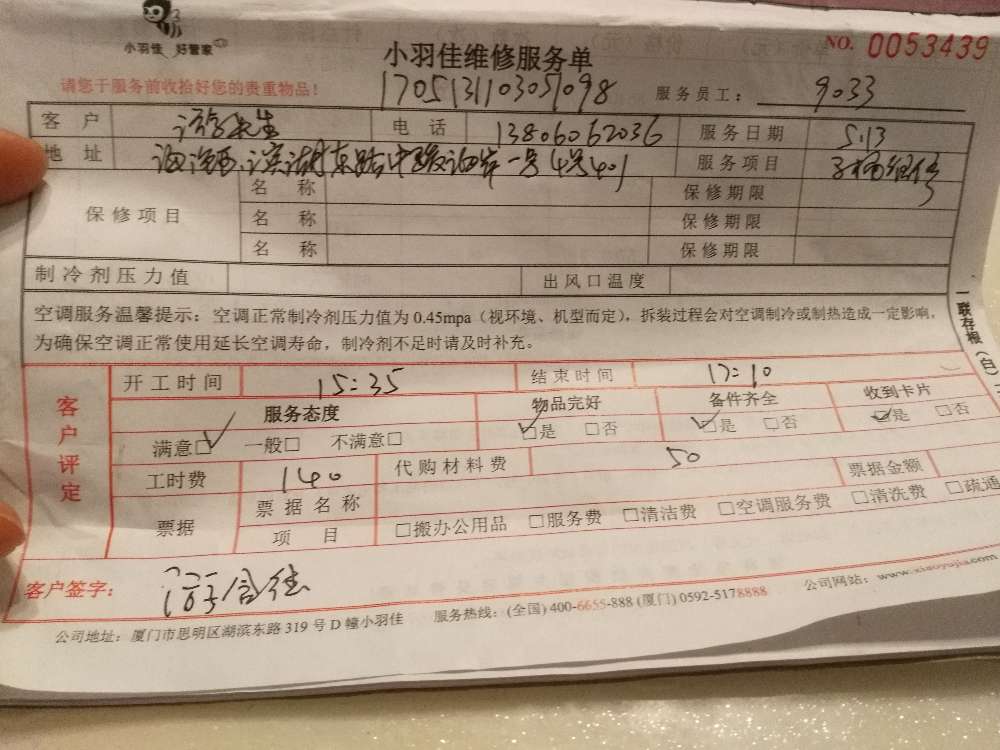 小羽佳 好管家
小羽佳维修服务单
NO. 0053439
请您于服务前收拾好您的贵重物品！
1705131103051098
服务员工： 9033
客户 先生 电话 13806062036 服务日期 5.13
地址 401 服务项目 维修
保修项目 名称 保修期限
名称 保修期限
名称 保修期限
制冷剂压力值 出风口温度
空调服务温馨提示：空调正常制冷剂压力值为0.45mpa（视环境、机型而定），拆装过程会对空调制冷或制热造成一定影响，
为确保空调正常使用延长空调寿命，制冷剂不足时请及时补充。
一联存根（白
客户评定
开工时间 15:35 结束时间 17:10
服务态度 物品完好 备件齐全 收到卡片
满意□ 一般□ 不满意□ □是 □否 □是 □否 □是 □否
工时费 140 代购材料费 50 票据金额
票据 票据名称
项目 □搬办公用品 □服务费 □清洁费 □空调服务费 □清洗费 □疏通
客户签字：
公司地址：厦门市思明区湖滨东路319号D幢小羽佳 服务热线：(全国) 400-6655-888 (厦门) 0592-5178888 公司网站：www.xiaoyujia.com